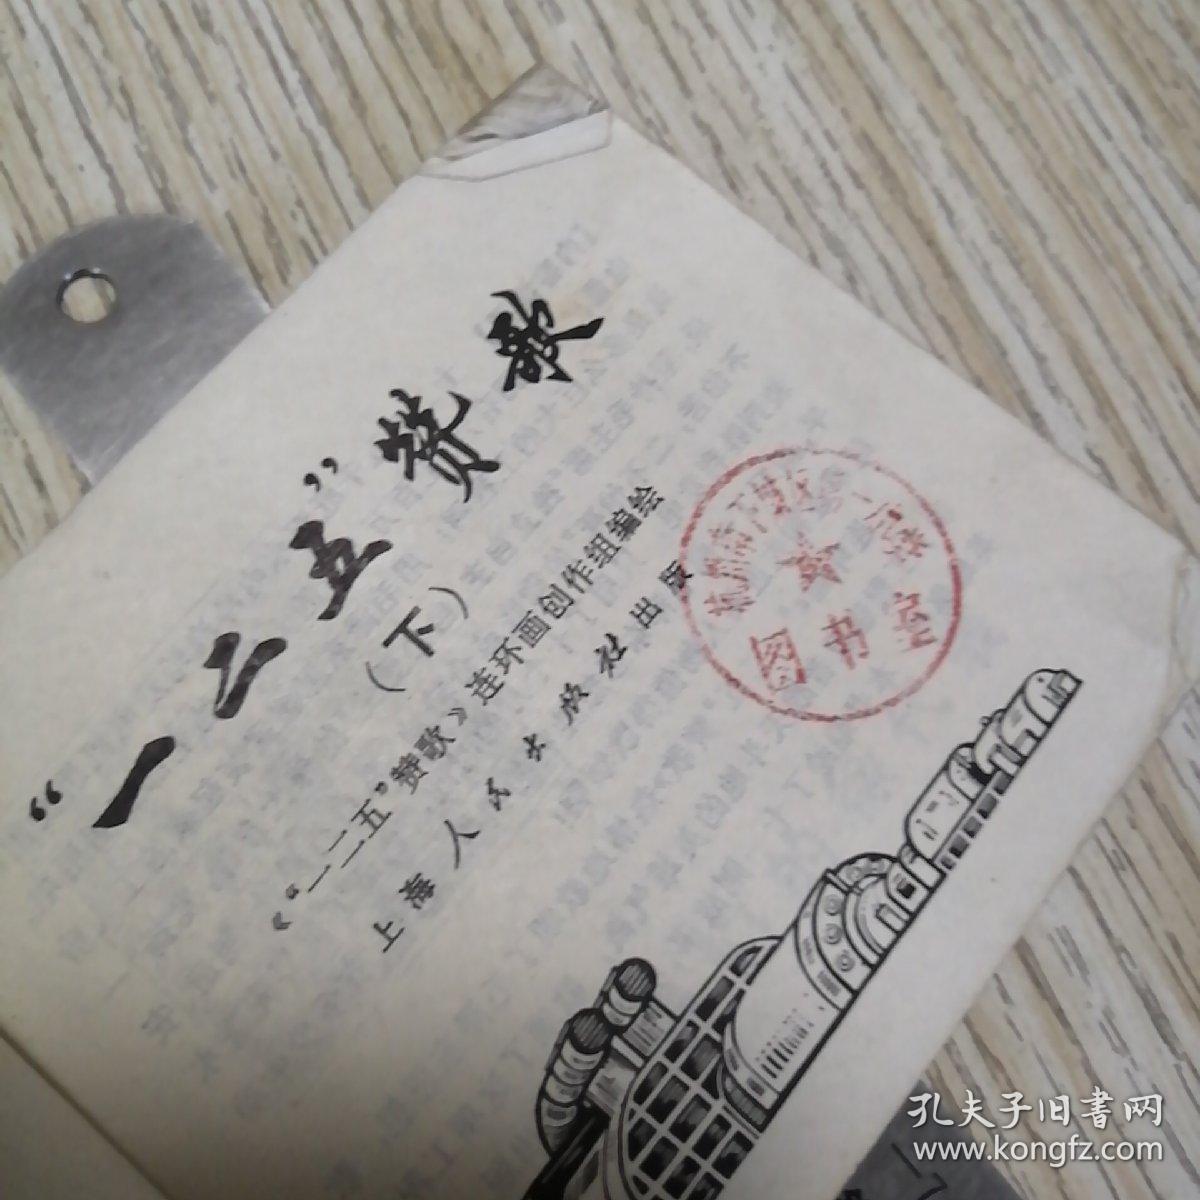 “一二五”赞歌
（下）
《“一二五”赞歌》连环画创作组编绘
上海人民出版社出版
图书室
孔夫子旧書网
www.kongfz.com